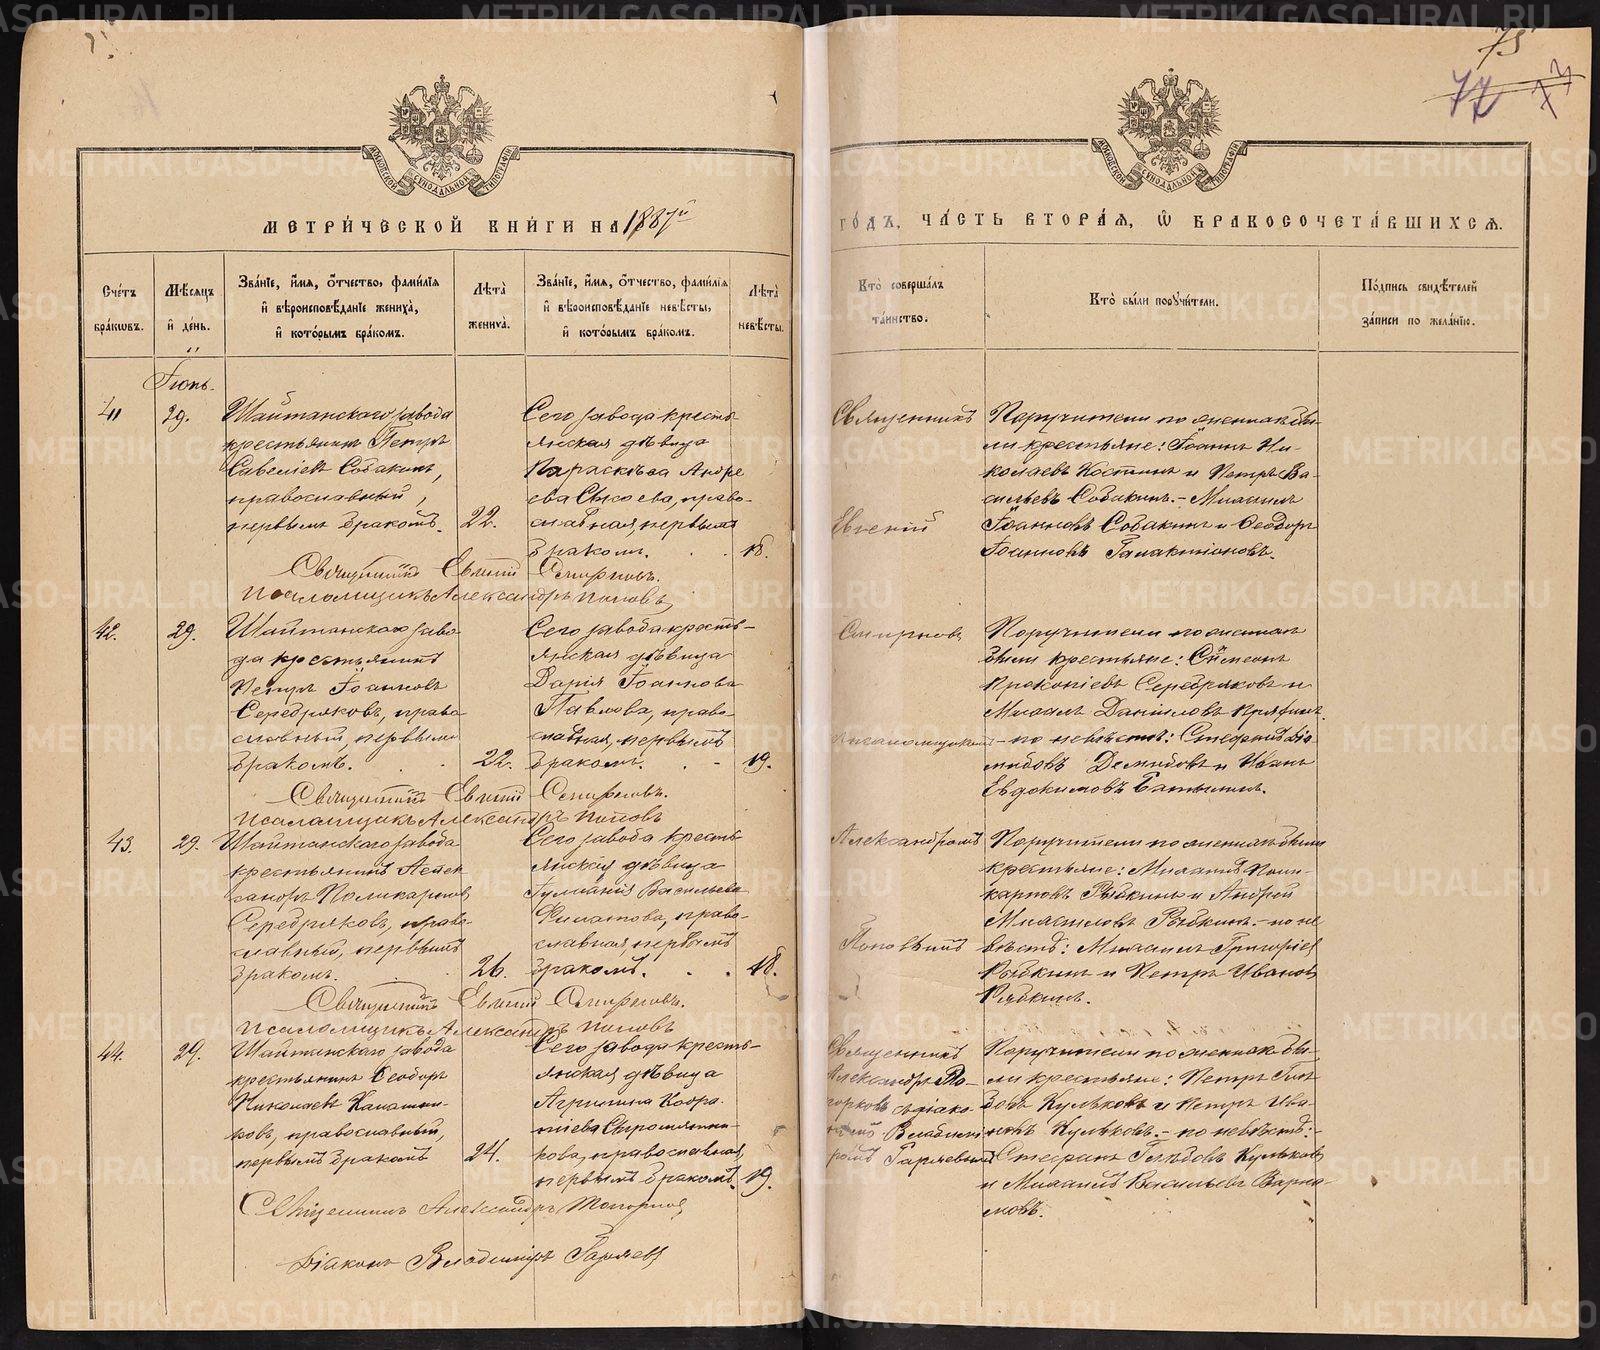 75
77
МЕТРИ́ЧЕСКОЙ КНИ́ГИ НА 1887й
ГО́ДЪ, ЧА́СТЬ ВТОРА́Я, Ѡ БРАКОСОЧЕТА́ВШИХСЯ.
МОСКОВСКОЙ СѴНОДАЛЬНОЙ ТИПОГРАФІИ
МОСКОВСКОЙ СѴНОДАЛЬНОЙ ТИПОГРАФІИ
Сче́тъ бра́кѡвъ.
Мѣ́сяцъ и҆ де́нь.
Зва́нїе, и҆́мя, ѻ҆́тчество, фами́лїя и҆ вѣроисповѣ́данїе жениха̀, и҆ кото́рымъ бра́комъ.
Лѣта̀ жениха̀.
Зва́нїе, и҆́мя, ѻ҆́тчество, фами́лїя и҆ вѣроисповѣ́данїе невѣ́сты, и҆ кото́рымъ бра́комъ.
Лѣта̀ невѣ́сты.
Кто̀ соверша́лъ та́инство.
Кто̀ бы́ли порꙋчи́тели.
По́дпись свидѣ́телей за́писи по жела́нїю.
Іюнь.
41
29.
Шайтанскаго завода
крестьянинъ Петръ
Савельевъ Собакинъ,
православный,
первымъ бракомъ.
22.
Сего завода кресть
янская дѣвица
Параскѣва Андре
ева Сысоева, право-
славная, первымъ
бракомъ.
18.
Священникъ
Евгеній
Поручители по женихѣ бы-
ли крестьяне: Іоаннъ Ни-
колаевъ Костинъ и Петръ Ва-
сильевъ Собакинъ. - Михаилъ
Іоанновъ Собакинъ и Ѳеодоръ
Іоанновъ Галактіоновъ.
Священникъ Евгеній Смирновъ.
Псаломщикъ Александръ Поповъ
42.
29.
Шайтанскаго заво-
да крестьянинъ
Петръ Іоанновъ
Серебряковъ, право
славный, первымъ
бракомъ.
22.
Сего завода кресть-
янская дѣвица
Дарія Іоаннова
Павлова, право-
славная, первымъ
бракомъ.
19.
Смирновъ
Псаломщикомъ
Поручители по женихѣ
были крестьяне: Сѵмеонъ
Прокопіевъ Серебряковъ и
Михаилъ Даниловъ
- по невѣстѣ: Стефанъ
Демидовъ и Иванъ
Евдокимовъ
Священникъ Евгеній Смирновъ.
Псаломщикъ Александръ Поповъ
43.
29.
Шайтанскаго завода
крестьянинъ Алек
сандръ Поликарповъ
Серебряковъ, право-
славный, первымъ
бракомъ.
26.
Сего завода кресть
янская дѣвица
Іуліанія Васильева
Филатова, право-
славная, первымъ
бракомъ.
18.
Александромъ
Поповымъ
Поручители по женихѣ были
крестьяне: Михаилъ Поли-
карповъ Рыбкинъ и Андрей
Михаиловъ Рыбкинъ. - по не
вѣстѣ: Михаилъ Григорьев
Рыбкинъ и Петръ Ивановъ
Рябкинъ.
Священникъ Евгеній Смирновъ.
Псаломщикъ Александръ Поповъ
44.
29.
Шайтанскаго завода
крестьянинъ Ѳеодоръ
Николаевъ Калашни-
ковъ, православный,
первымъ бракомъ
24.
Сего завода кресть-
янская дѣвица
Агрипина Кодра-
тіева Сыромятни-
кова, православная,
первымъ бракомъ.
19.
Священникъ
Александръ То-
порковъ съ діако-
номъ Владимі
ромъ Гаряевымъ
Поручители по женихѣ бы-
ли крестьяне: Петръ Глѣ
бовъ Кульковъ и Петръ Ива-
новъ Кульковъ. - по невѣстѣ: -
Стефанъ Глѣбовъ Кульковъ
и Михаилъ Васильевъ Варла-
мовъ.
Священникъ Александръ Топорковъ
Діаконъ Владиміръ Гаряевъ
METRIKI.GASO-URAL.RU